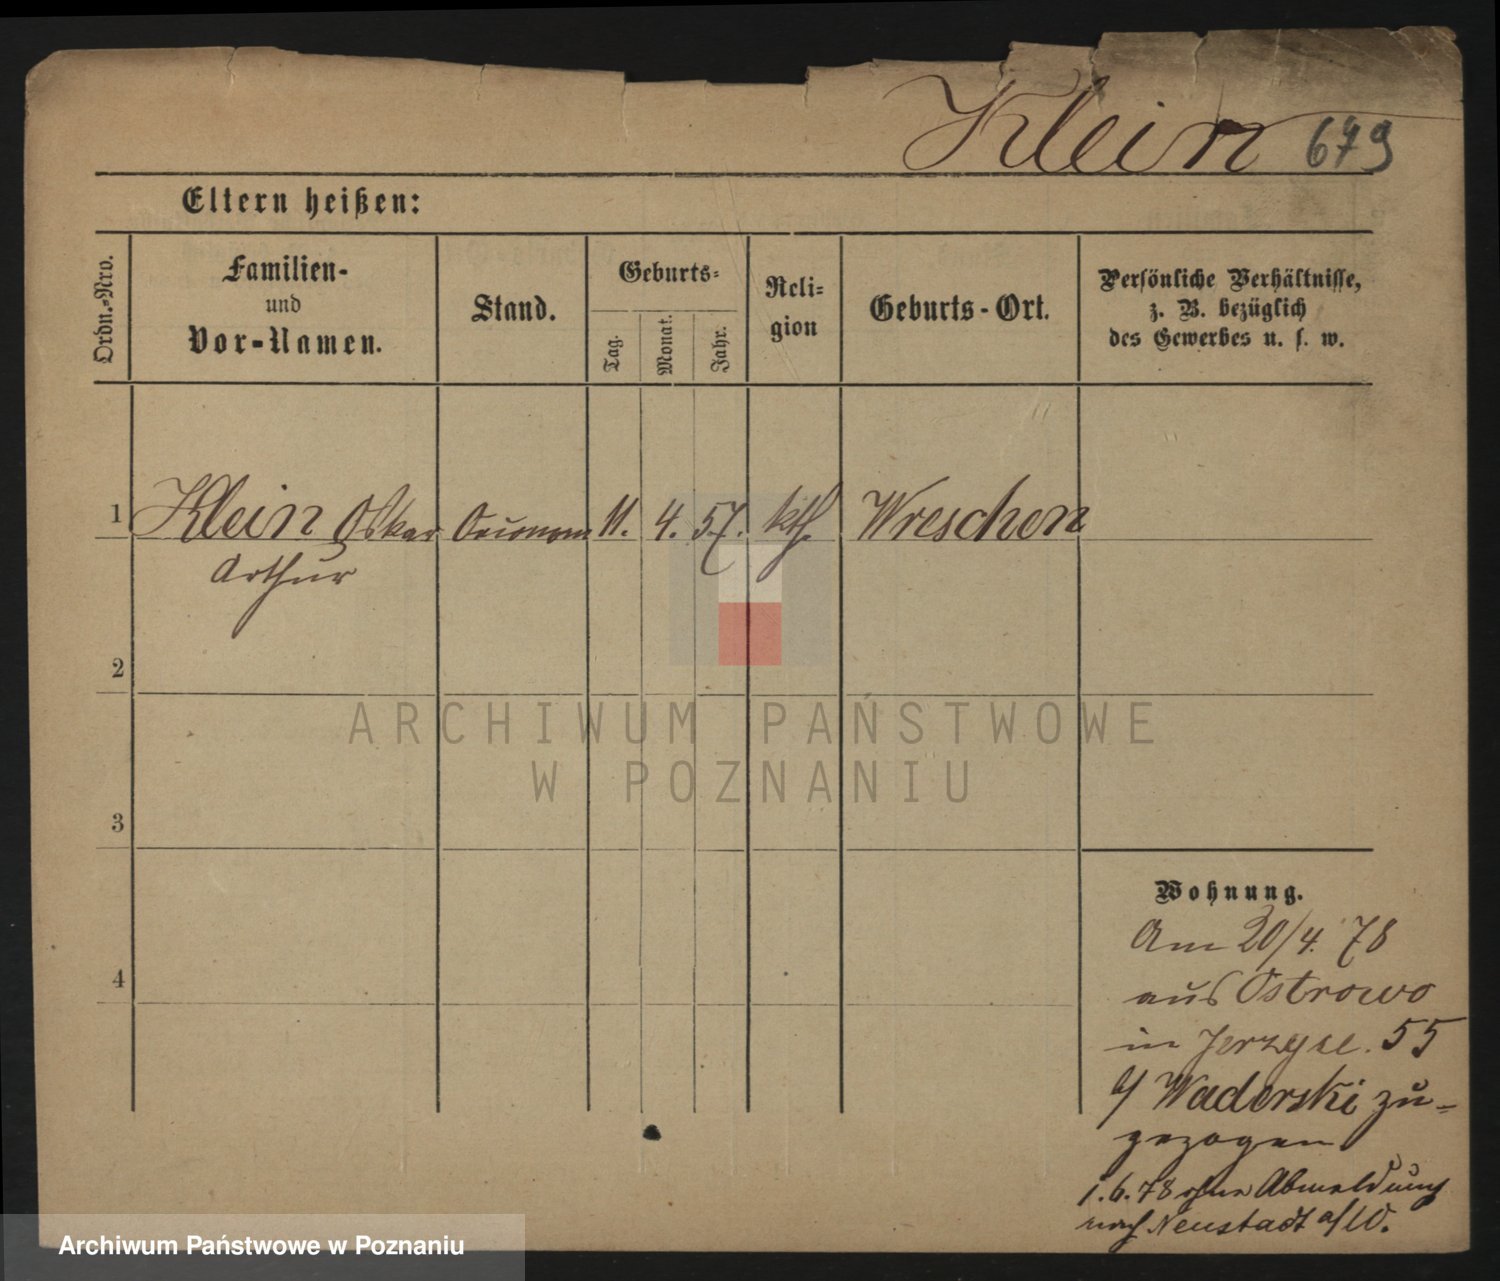 Klein 679
Eltern heißen:
Ordn.-Nro.
Familien-
und
Vor-Namen.
Stand.
Geburts-
Tag.
Monat.
Jahr.
Reli-
gion
Geburts-Ort.
Persönliche Verhältnisse,
z. B. bezüglich
des Gewerbes u. s. w.
1 Klein Oskar Oeconom 11. 4. 57. kth. Wreschen
Arthur
2
3
4
Wohnung.
Am 20/4. 78
aus Ostrowo
in Jerzyce. 55
b/ Waderski zu-
gezogen
1.6.78 ohne Abmeldung
nach Neustadt a/W.
ARCHIWUM PAŃSTWOWE
W POZNANIU
Archiwum Państwowe w Poznaniu